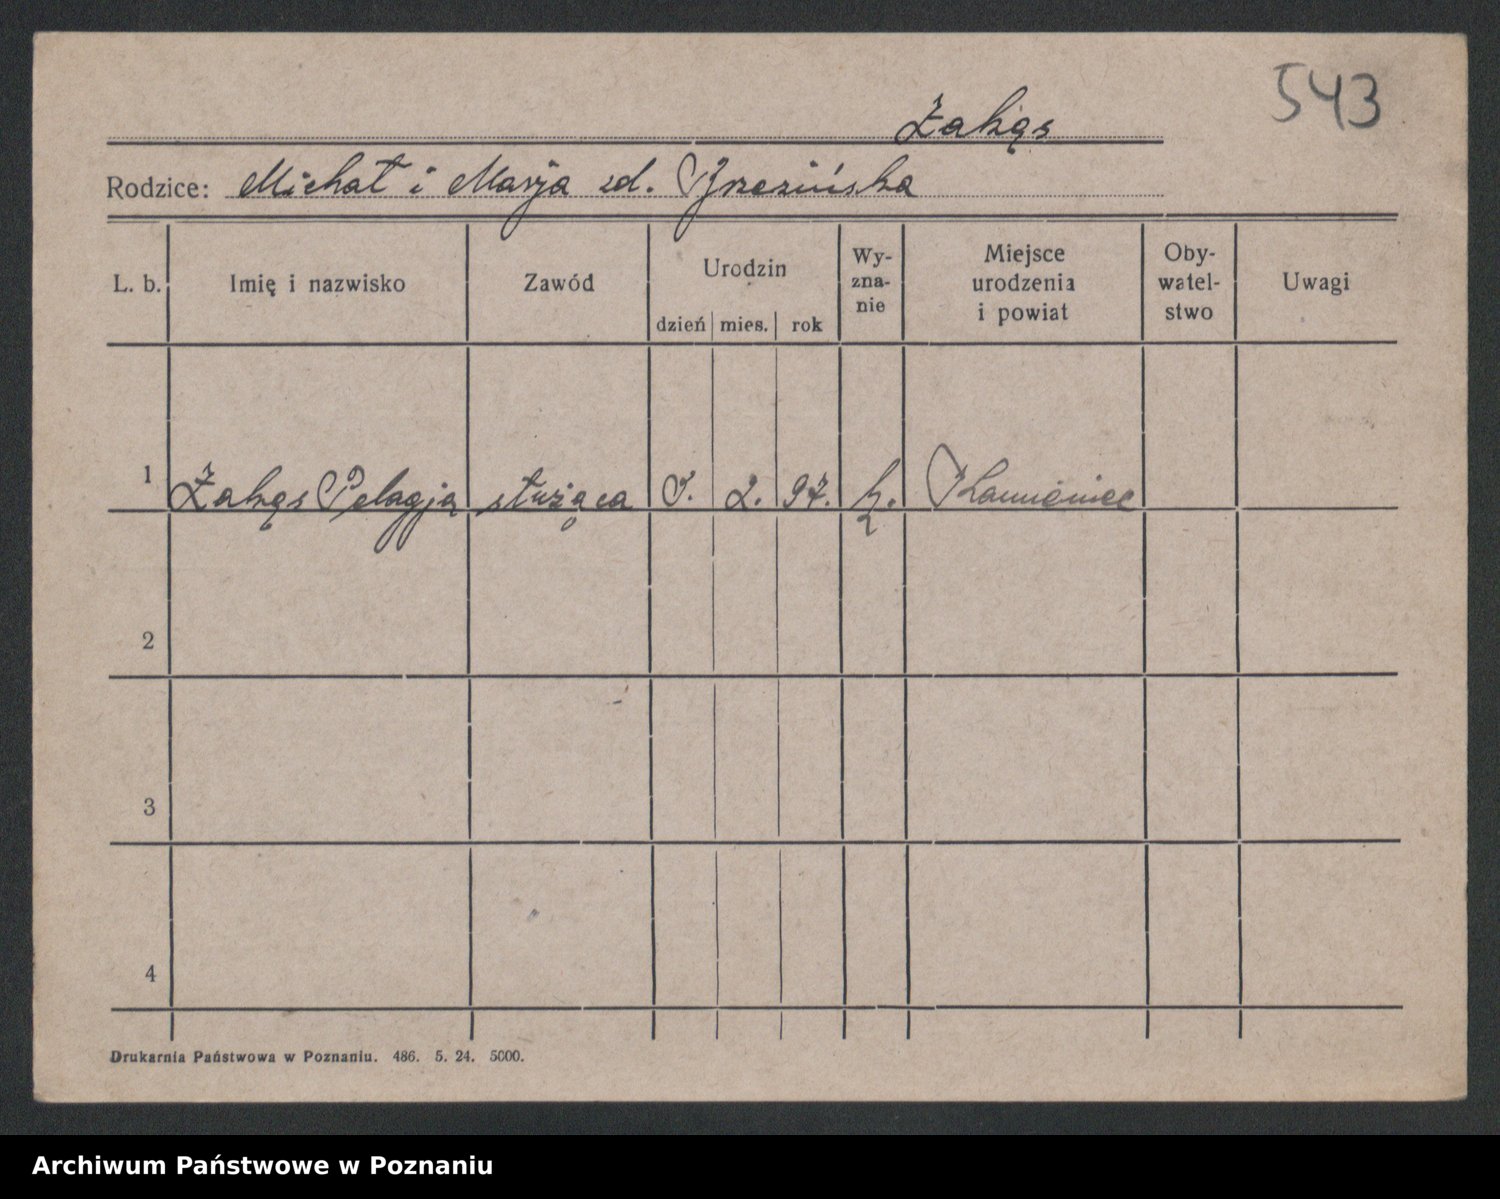 543
Żakęs
Rodzice: Michał i Marja zd. Brzezińska
L. b. Imię i nazwisko Zawód Urodzin dzień mies. rok Wyznanie Miejsce urodzenia i powiat Obywatelstwo Uwagi
1 Żakęs Pelagja służąca 2. 97. k. Kamieniec
2
3
4
Drukarnia Państwowa w Poznaniu. 486. 5. 24. 5000.
Archiwum Państwowe w Poznaniu